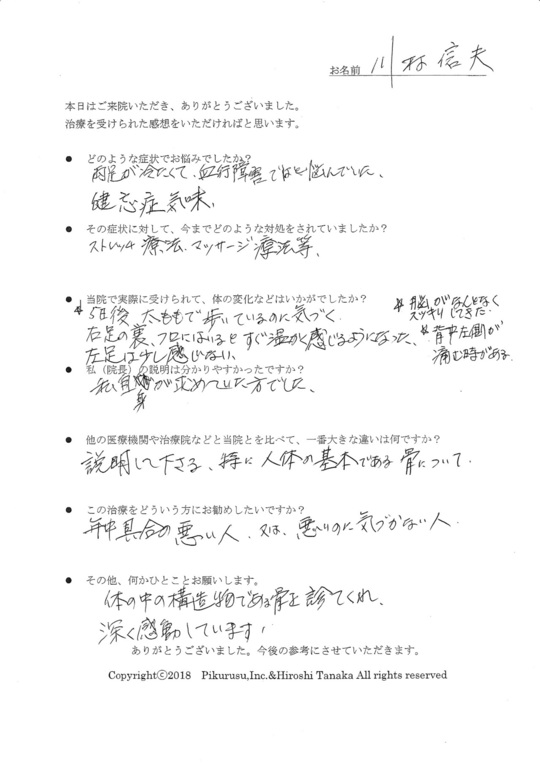 お名前 川村 信夫
本日はご来院いただき、ありがとうございました。
治療を受けられた感想をいただければと思います。
● どのような症状でお悩みでしたか？
両足が冷たくて、血行障害ではと悩んでいた、
健忘症気味、
● その症状に対して、今までどのような対処をされていましたか？
ストレッチ療法、マッサージ療法等、
● 当院で実際に受けられて、体の変化などはいかがでしたか？
＊5日後 太ももで歩いているのに気づく
右足の裏、フロにはいるとすぐ温かく感じるようになった、
左足は少し感じない。
＊脳がなんとなく
スッキリしてきた。
＊背中左側が
痛む時がある。
● 私（院長）の説明は分かりやすかったですか？
私自身が求めていた方でした、
● 他の医療機関や治療院などと当院とを比べて、一番大きな違いは何ですか？
説明して下さる、特に人体の基本である骨について.
● この治療をどういう方にお勧めしたいですか？
年中具合の悪い人、又は、悪いのに気づかない人.
● その他、何かひとことお願いします。
体の中の構造物である骨を診てくれ、
深く感動しています!
ありがとうございました。今後の参考にさせていただきます。
Copyrightⓒ2018 Pikurusu,Inc.&Hiroshi Tanaka All rights reserved